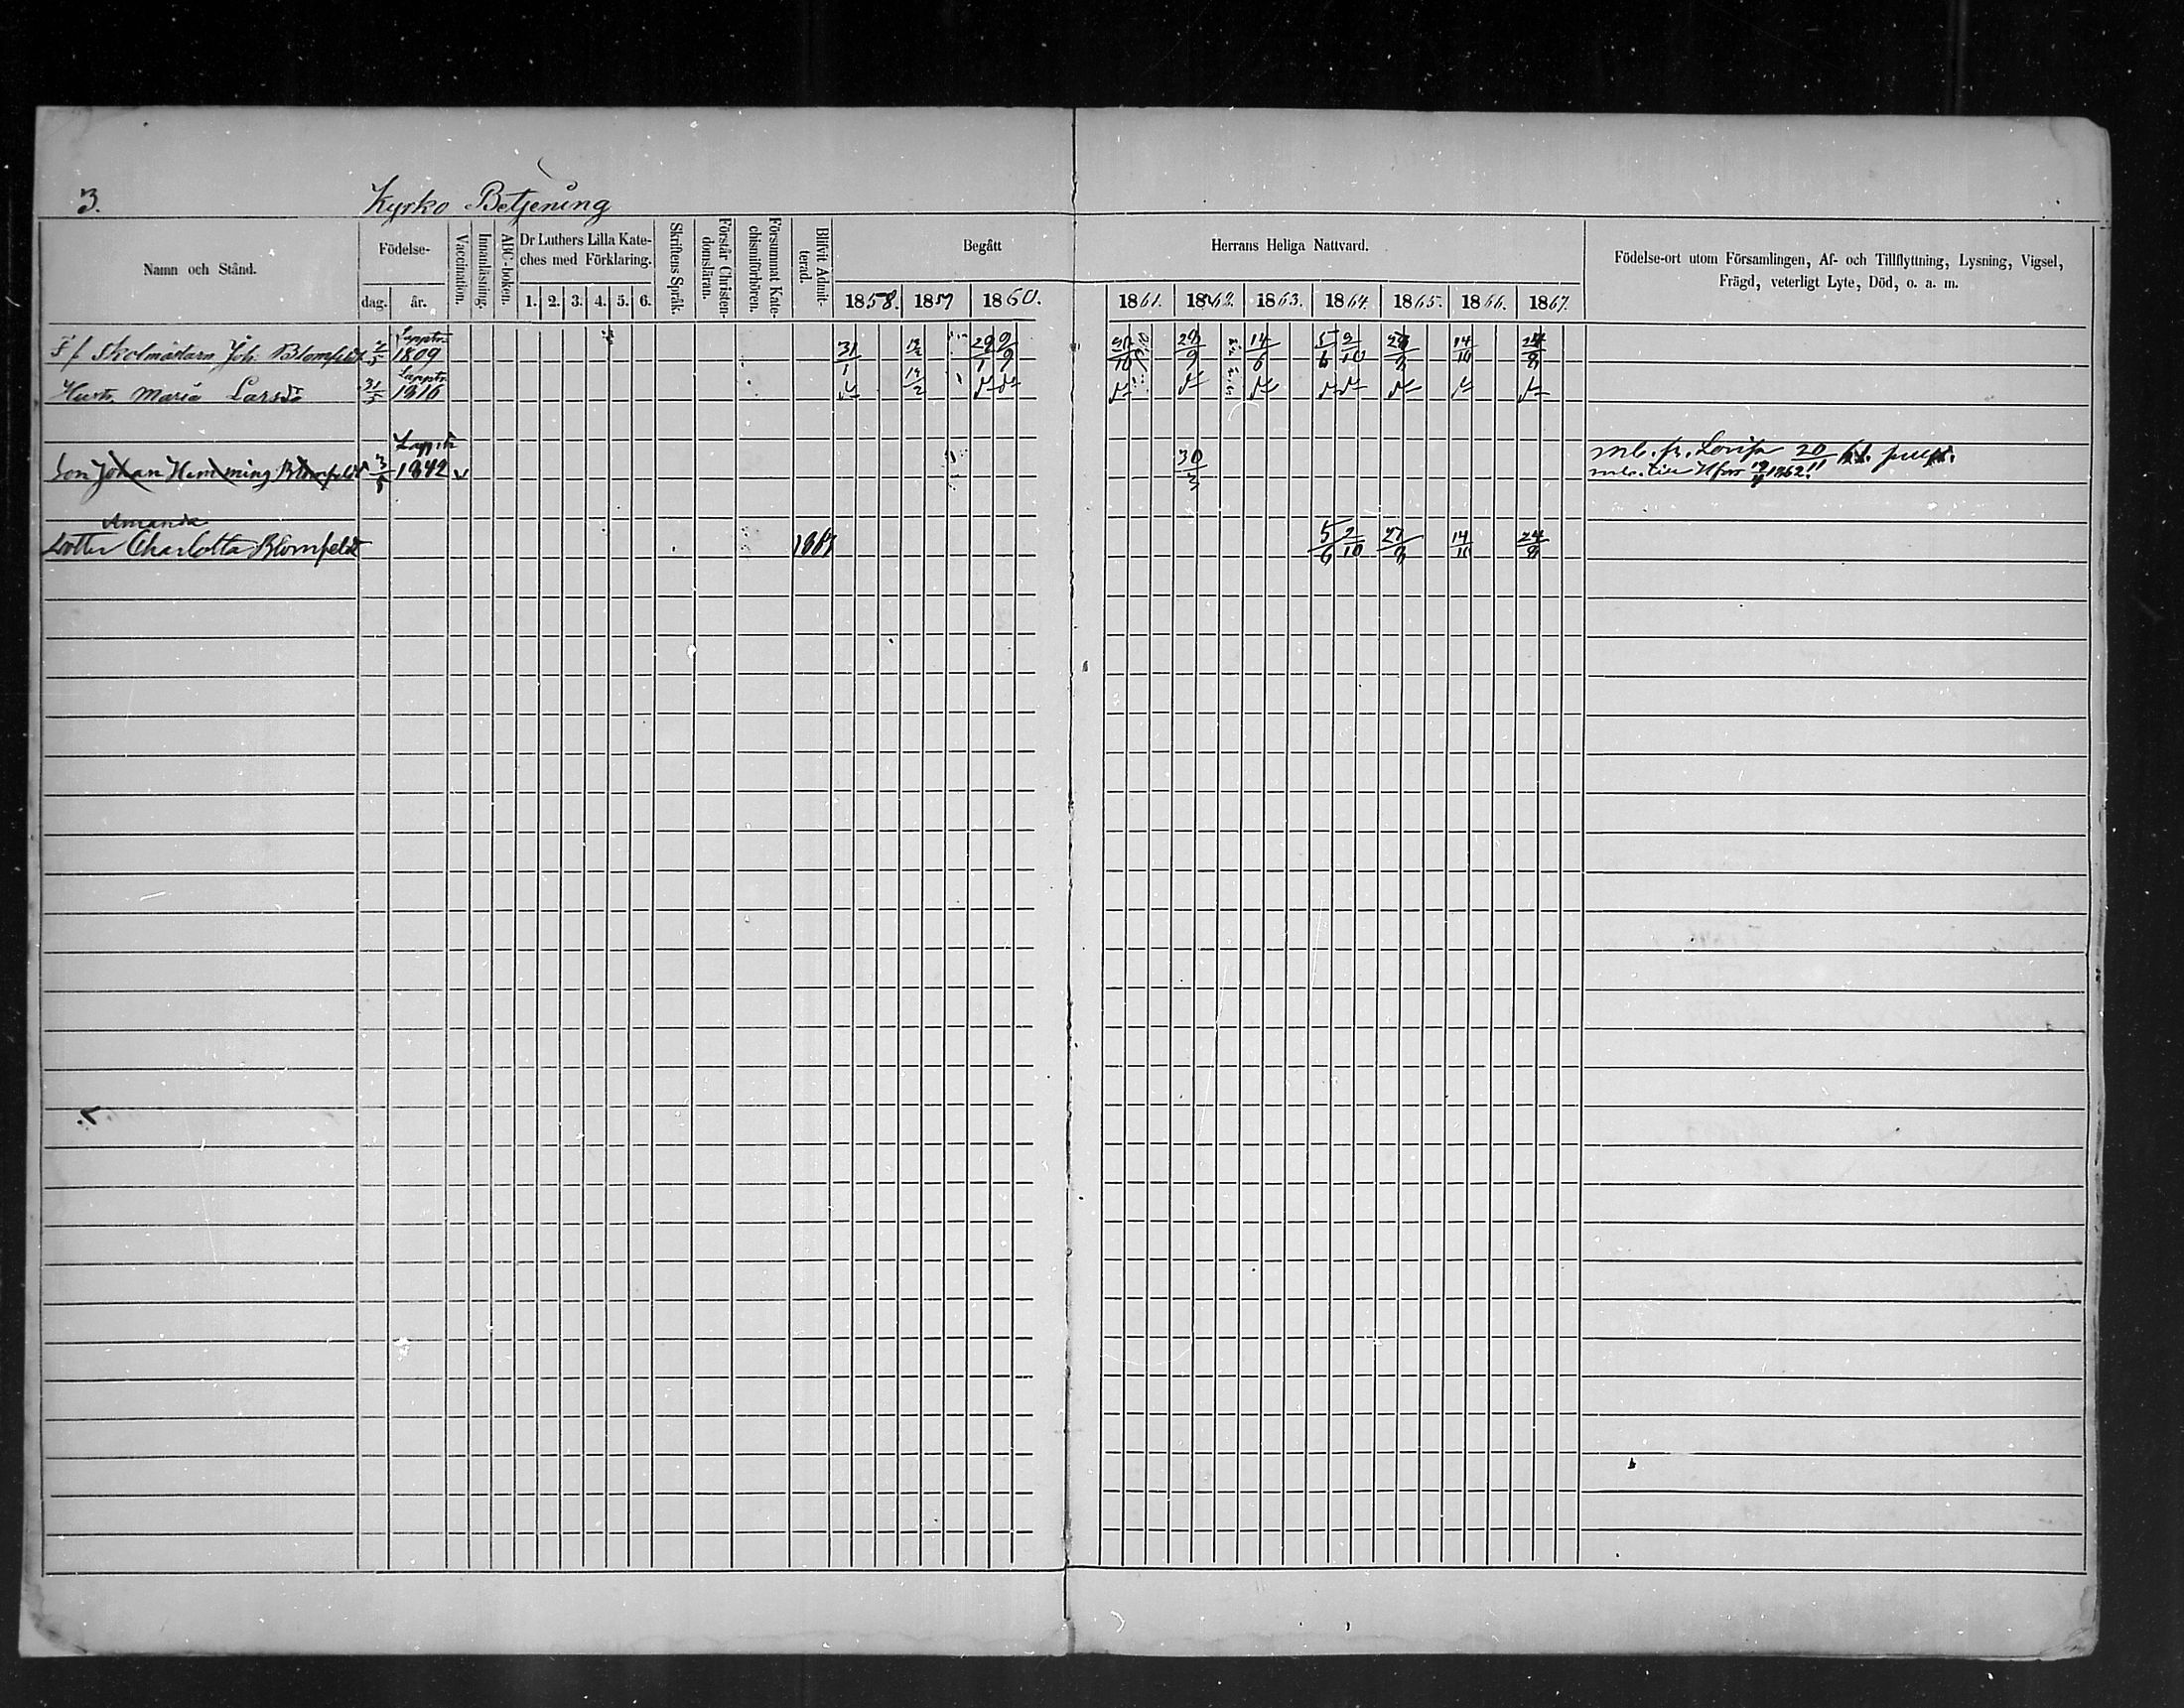 3. Kyrko Betjening
Namn och Stånd.
Födelse-
dag. år.
Vaccination.
Innanläsning.
ABC-boken.
Dr Luthers Lilla Kate-
ches med Förklaring.
1. 2. 3. 4. 5. 6.
Skriftens Språk.
Förstår Christen-
domsläran.
Försummat Kate-
chismiförhören.
Blifvit Admit-
terad.
Begått
1858. 1859 1860.
Herrans Heliga Nattvard.
1861. 1862. 1863. 1864. 1865. 1866. 1867.
Födelse-ort utom Församlingen, Af- och Tillflyttning, Lysning, Vigsel,
Frägd, veterligt Lyte, Död, o. a. m.
Lapptr
F f Skolmästarn Joh. Blomfeldt 1809 31/1 29/9 14/6 5/6 2/10 14/10 24/8
Lapptr
Hustr. Maria Larsdr 31/5 1816
Lapptr
Son Johan Hemming Blomfeldt 1842 v 30/3 mb. fr. Lovisa 20
mb. till Hfors 1862
Amanda
Dotter Charlotta Blomfeldt 5/6 2/10 14/10 24/8